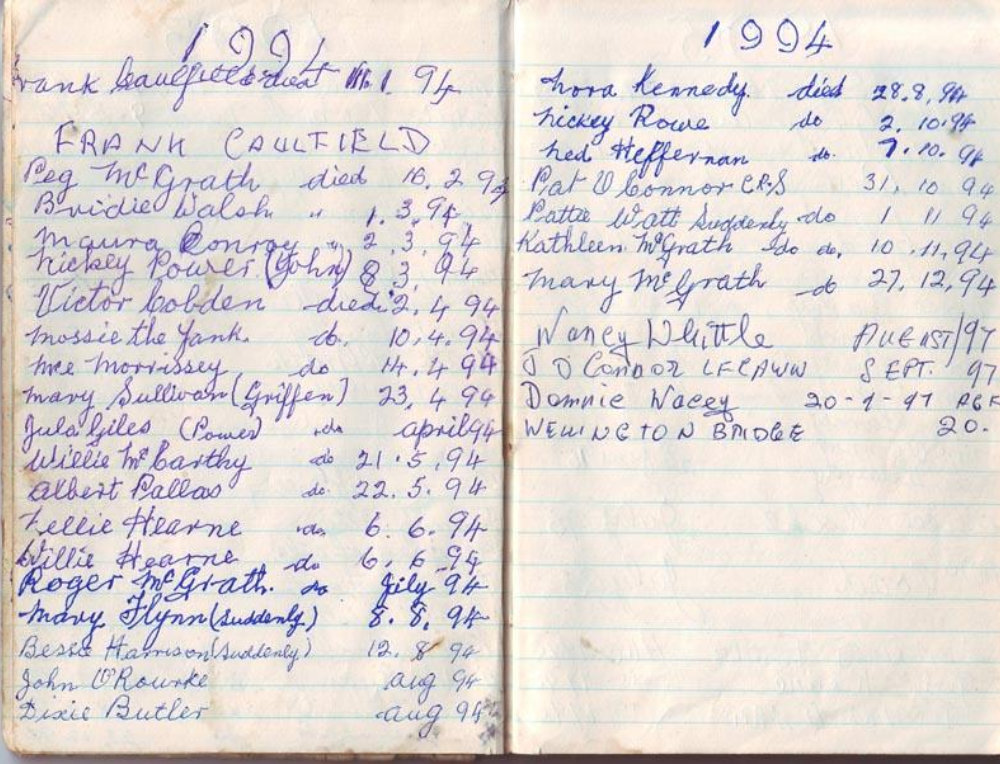 1994
Frank Caulfield died 1. 94
FRANK CAULFIELD
Peg McGrath died 16. 2 94
Bridie Walsh " 1. 3. 94
Maura Conroy " 2. 3. 94
Nickey Power (John) 8 3. 94
Victor Cobden died 2. 4 94
Mossie the Yank. do. 10. 4. 94
Morrissey do 14. 4 94
Mary Sullivan (Griffen) 23, 4 94
Jula Giles (Power) do april 94
Willie McCarthy do 21. 5, 94
Albert Pallas do 22. 5. 94
Nellie Hearne do. 6. 6. 94
Willie Hearne do 6. 6 94
Roger McGrath. do July 94
Mary Flynn (Suddenly) 8. 8. 94
Bessie Harrison (Suddenly) 12. 8 94
John O'Rourke aug 94
Dixie Butler aug 94
1994
Nora Kennedy. died 28. 8, 94
Nickey Rowe do 2. 10. 94
Ned Heffernan do. 7. 10. 94
Pat O Connor 31, 10 94
Pattie Watt Suddenly do 1 11 94
Kathleen McGrath do do, 10. 11, 94
Mary McGrath do 27, 12, 94
Nancy Whittle AUGUST/97
J O CONNOR SEPT. 97
Dominic Wacey 20-9-97
WELLINGTON BRIDGE 20.